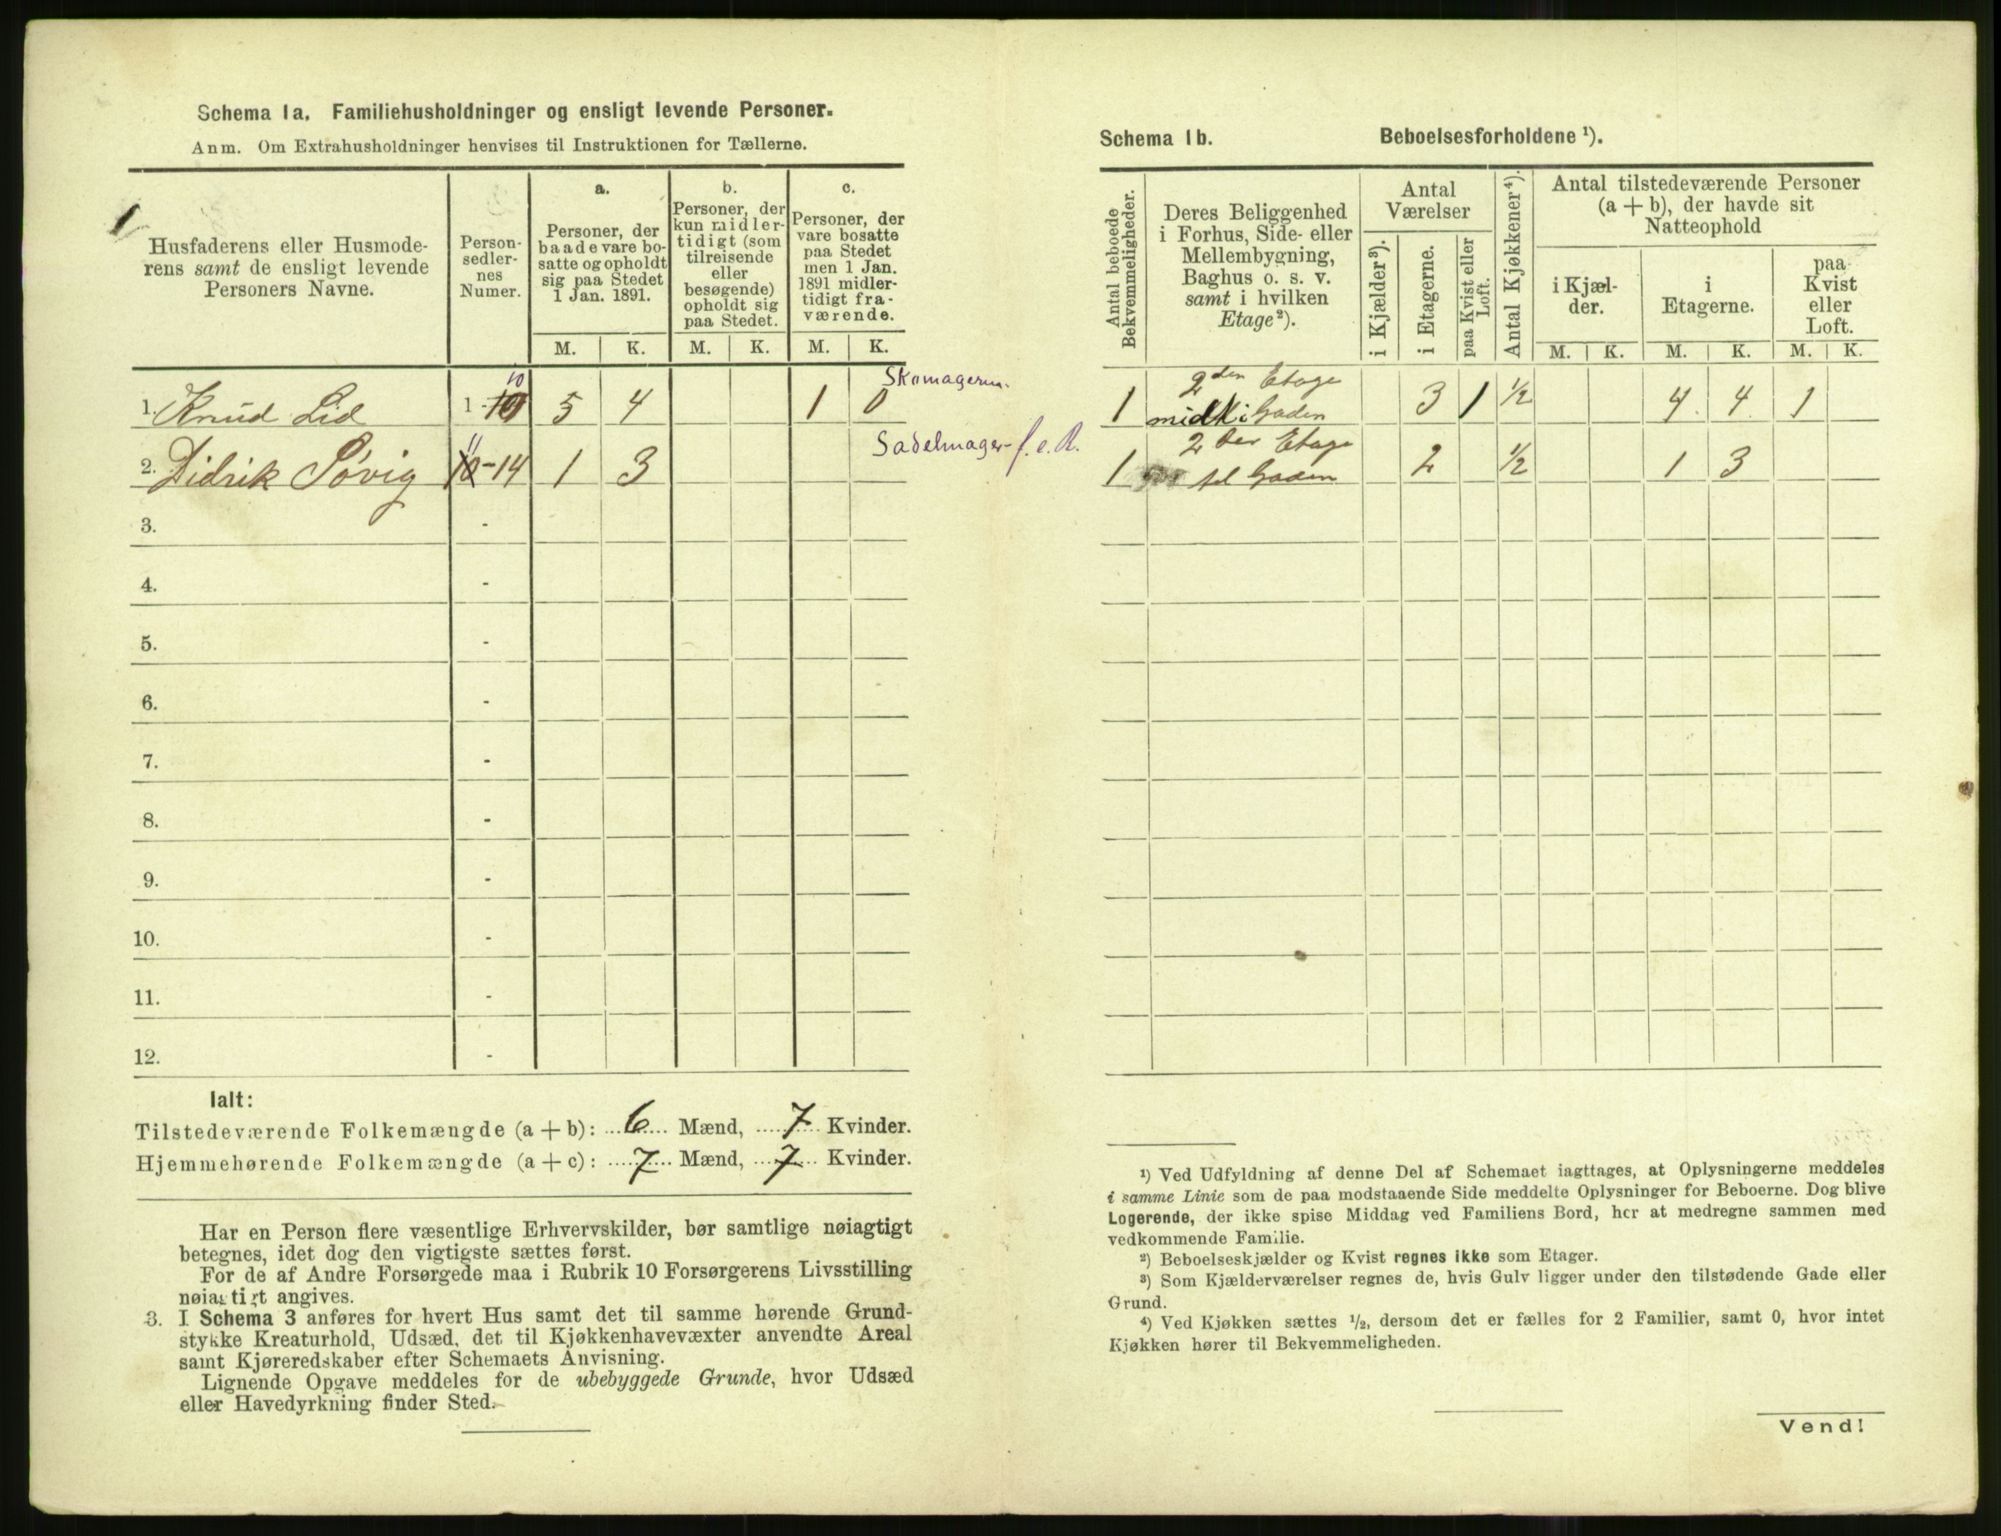 Schema 1a. Familiehusholdninger og ensligt levende Personer.
Anm. Om Extrahusholdninger henvises til Instruktionen for Tællerne.
1
Husfaderens eller Husmode-
rens samt de ensligt levende
Personers Navne.
Person-
sedler-
nes
Numer.
a.
Personer, der
baade vare bo-
satte og opholdt
sig paa Stedet
1 Jan. 1891.
b.
Personer, der
kun midler-
tidigt (som
tilreisende
eller
besøgende)
opholdt sig
paa Stedet.
c.
Personer, der
vare bosatte
paa Stedet
men 1 Jan.
1891 midler-
tidigt fra-
værende.
M. K. M. K. M. K.
1. Knud Lid 1 - 10 5 4 1 0 Skomagerm.
2. Didrik Søvig 11 - 14 1 3 Sadelmager f. e. R.
3. -
4. -
5. -
6. -
7. -
8. -
9. -
10. -
11. -
12. -
Ialt:
Tilstedeværende Folkemængde (a + b): 6 Mænd, 7 Kvinder.
Hjemmehørende Folkemængde (a + c): 7 Mænd, 7 Kvinder.
Har en Person flere væsentlige Erhvervskilder, bør samtlige nøiagtigt
betegnes, idet dog den vigtigste sættes først.
For de af Andre Forsørgede maa i Rubrik 10 Forsørgerens Livsstilling
nøiagtigt angives.
3. I Schema 3 anføres for hvert Hus samt det til samme hørende Grund-
stykke Kreaturhold, Udsæd, det til Kjøkkenhavevæxter anvendte Areal
samt Kjøreredskaber efter Schemaets Anvisning.
Lignende Opgave meddeles for de ubebyggede Grunde, hvor Udsæd
eller Havedyrkning finder Sted.
Schema 1b. Beboelsesforholdene ¹).
Antal beboede
Bekvemmeligheder.
Deres Beliggenhed
i Forhus, Side- eller
Mellembygning,
Baghus o. s. v.
samt i hvilken
Etage²).
Antal
Værelser
i Kjælder³).
i Etagerne.
paa Kvist eller
Loft.
Antal Kjøkkener⁴).
Antal tilstedeværende Personer
(a + b), der havde sit
Natteophold
i Kjæl-
der.
i
Etagerne.
paa
Kvist
eller
Loft.
M. K. M. K. M. K.
1 2den Etage
midt i Gaden 3 1 ½ 4 4 1
1 2den Etage
til Gaden 2 ½ 1 3
¹) Ved Udfyldning af denne Del af Schemaet iagttages, at Oplysningerne meddeles
i samme Linie som de paa modstaaende Side meddelte Oplysninger for Beboerne. Dog blive
Logerende, der ikke spise Middag ved Familiens Bord, her at medregne sammen med
vedkommende Familie.
²) Beboelseskjælder og Kvist regnes ikke som Etager.
³) Som Kjælderværelser regnes de, hvis Gulv ligger under den tilstødende Gade eller
Grund.
⁴) Ved Kjøkken sættes ½, dersom det er fælles for 2 Familier, samt 0, hvor intet
Kjøkken hører til Bekvemmeligheden.
Vend!